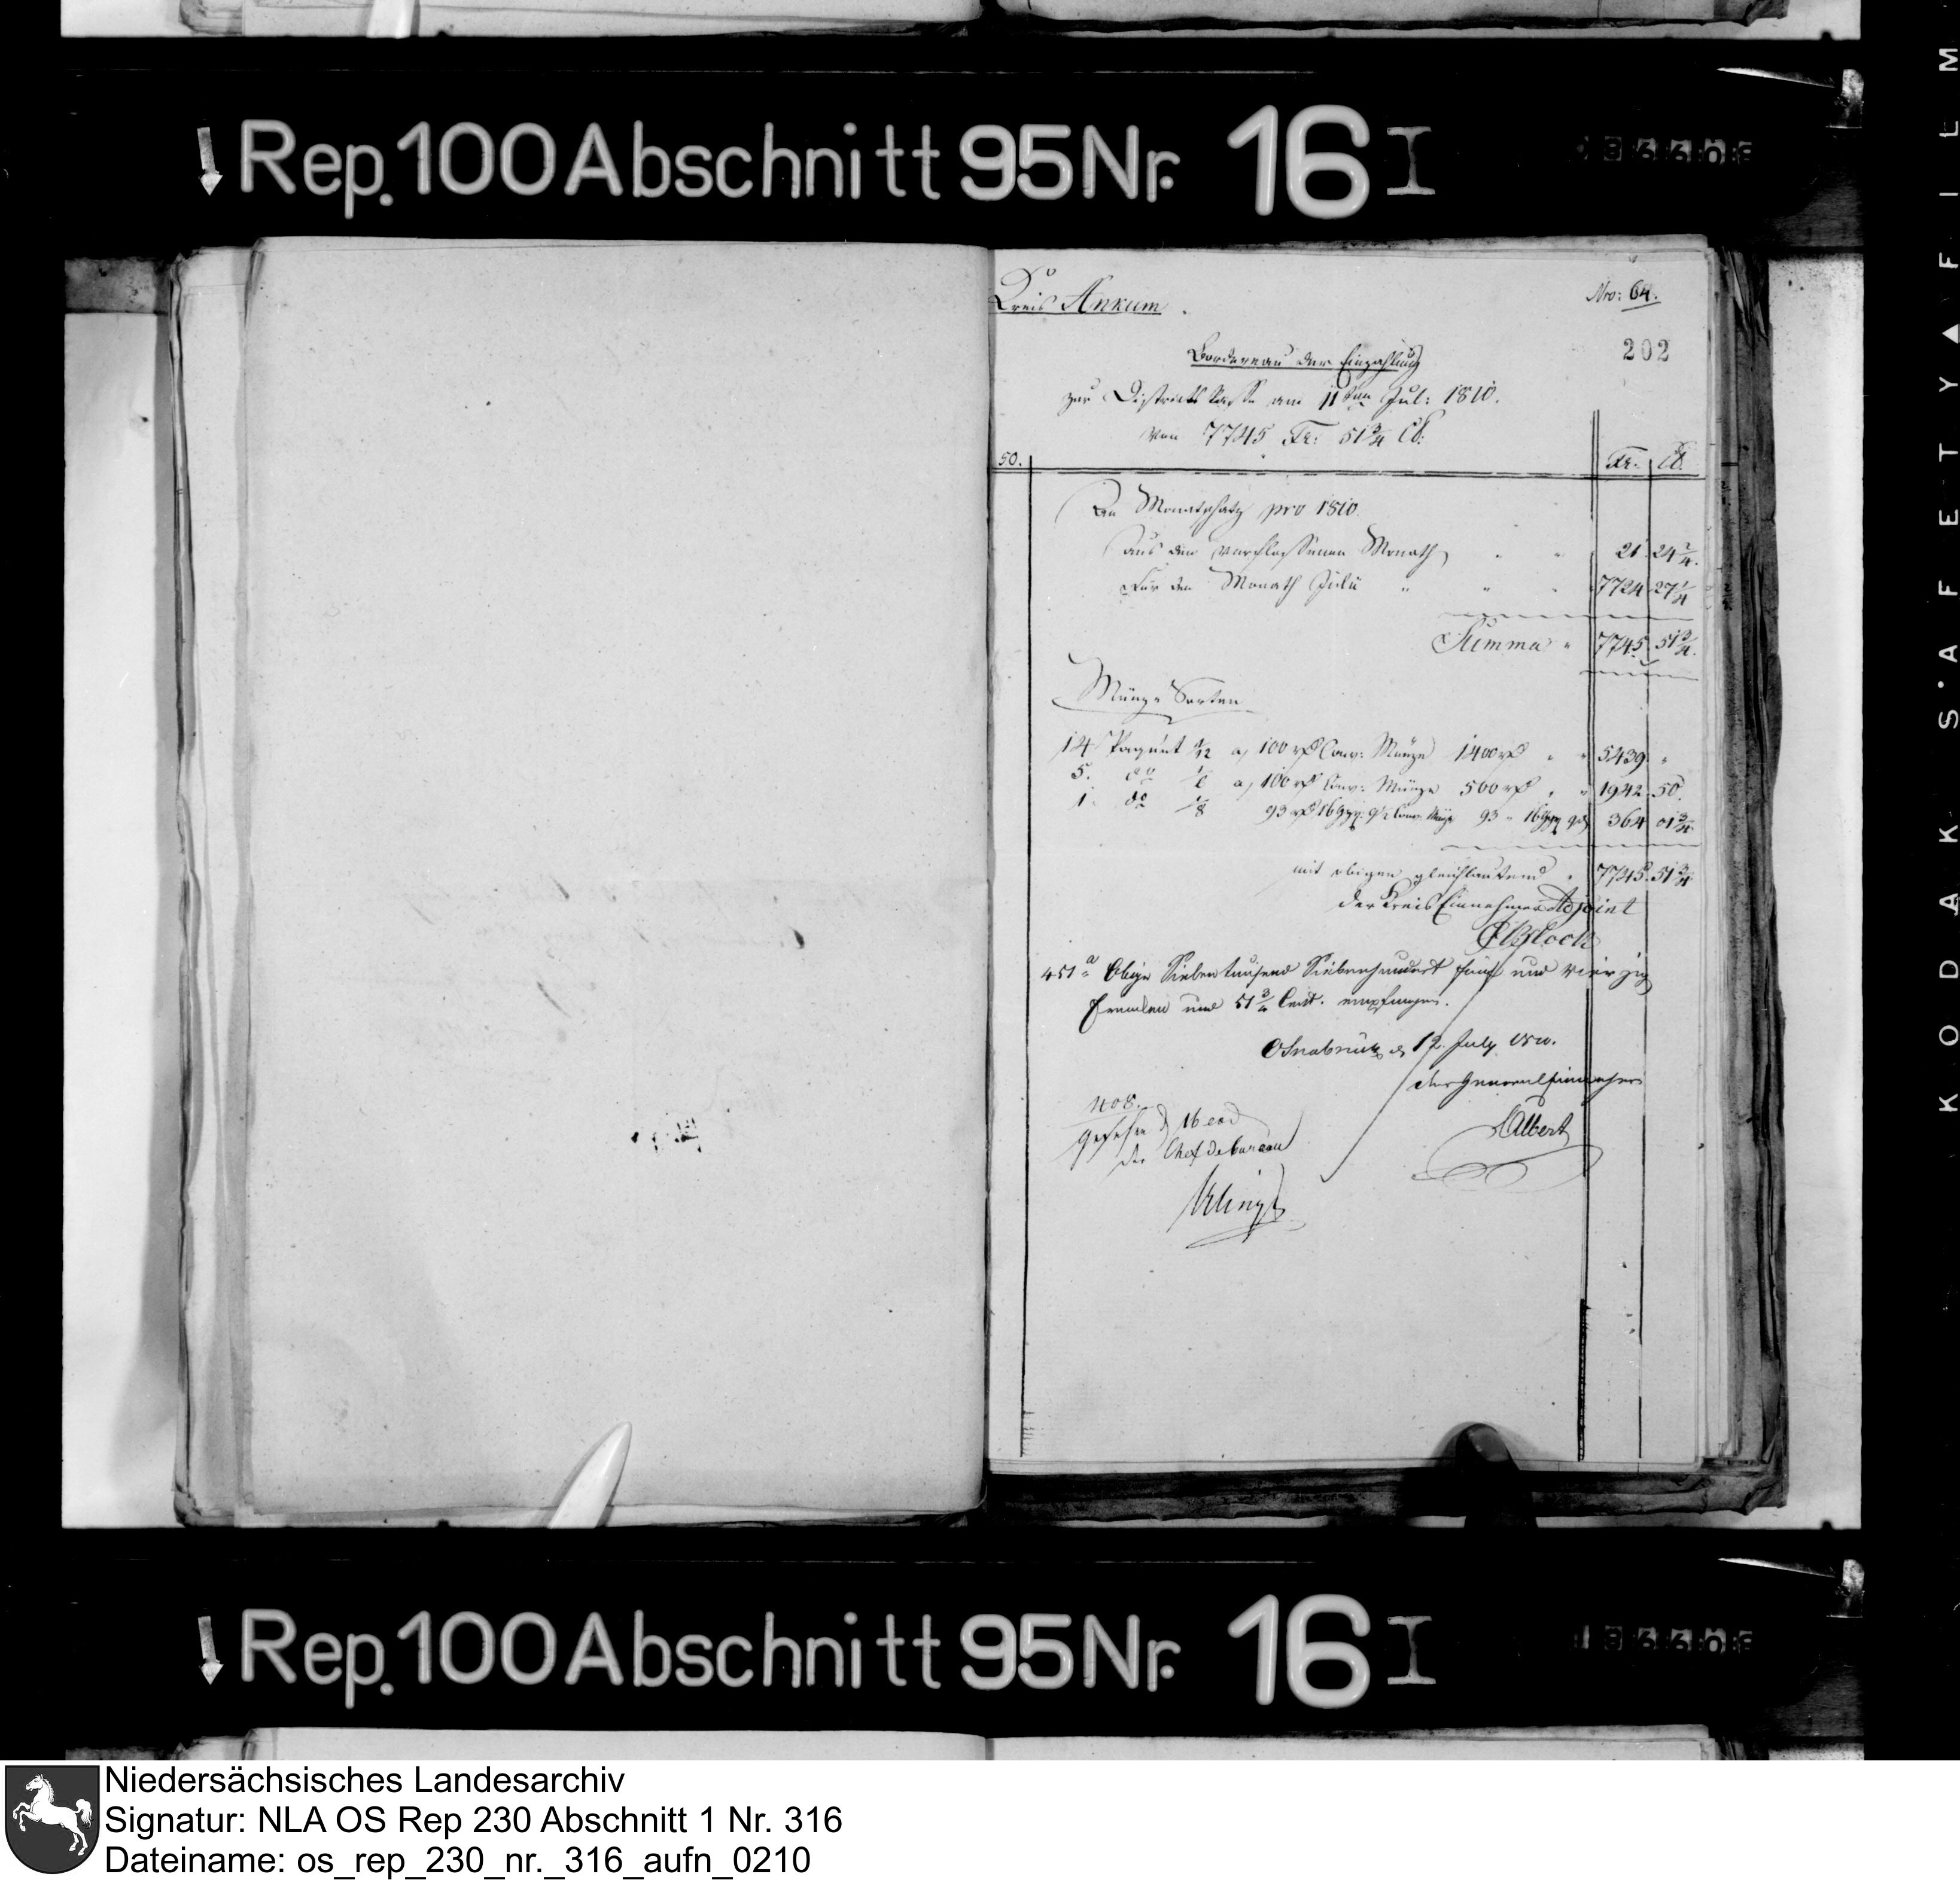 Rep. 100 Abschnitt 95 Nr. 16 I
Kreis Ankum.
Nro: 64.
202
Bordereau der Einzahlung
zur Districts Casse am 11ten Jul: 1810.
von 7745 Fr: 51 3/4 Ct:
50.
Fr: Ct.
An Monatschatz pro 1810.
aus den verflossenen Monath " " 21 24 2/4.
Für den Monath Julii " " " 7724 27 1/4
Summa " 7745 51 3/4.
Münz Sorten
14 Paquet 1/12 a, 100 rth Conv: Münze 1400 rth " " 5439 "
5. do 1/6 a, 100 rth Conv: Münze 500 rth " " 1942 50.
1. do 93 rth 16 Conv: Münze 93 " 16 364 01 3/4.
mit obigen gleichlautend " 7745 51 3/4
der Kreis Einnehmer Adjoint
451 a Obige Siebentausend Siebenhundert fünf und vierzig
Franken und 51 3/4 Cent. empfangen.
Osnabrück d 12. July 1810.
der Generaleinnehmer
Albert
1108.
gesehen d 16 eod
der Chef de bureau
Rep. 100 Abschnitt 95 Nr. 16 I
KODAK SAFETY FILM
Niedersächsisches Landesarchiv
Signatur: NLA OS Rep 230 Abschnitt 1 Nr. 316
Dateiname: os_rep_230_nr._316_aufn_0210